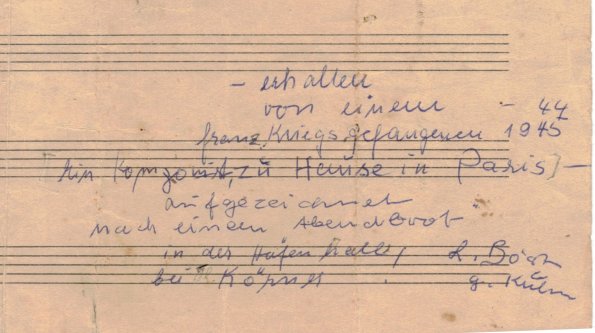 - erhalten
von einem - 44
franz. Kriegsgefangenen 1945
[Ein Komponist, zu Hause in Paris] -
aufgezeichnet
nach einem Abendbrot
in der Hafenhalle,
bei
g. Kühn